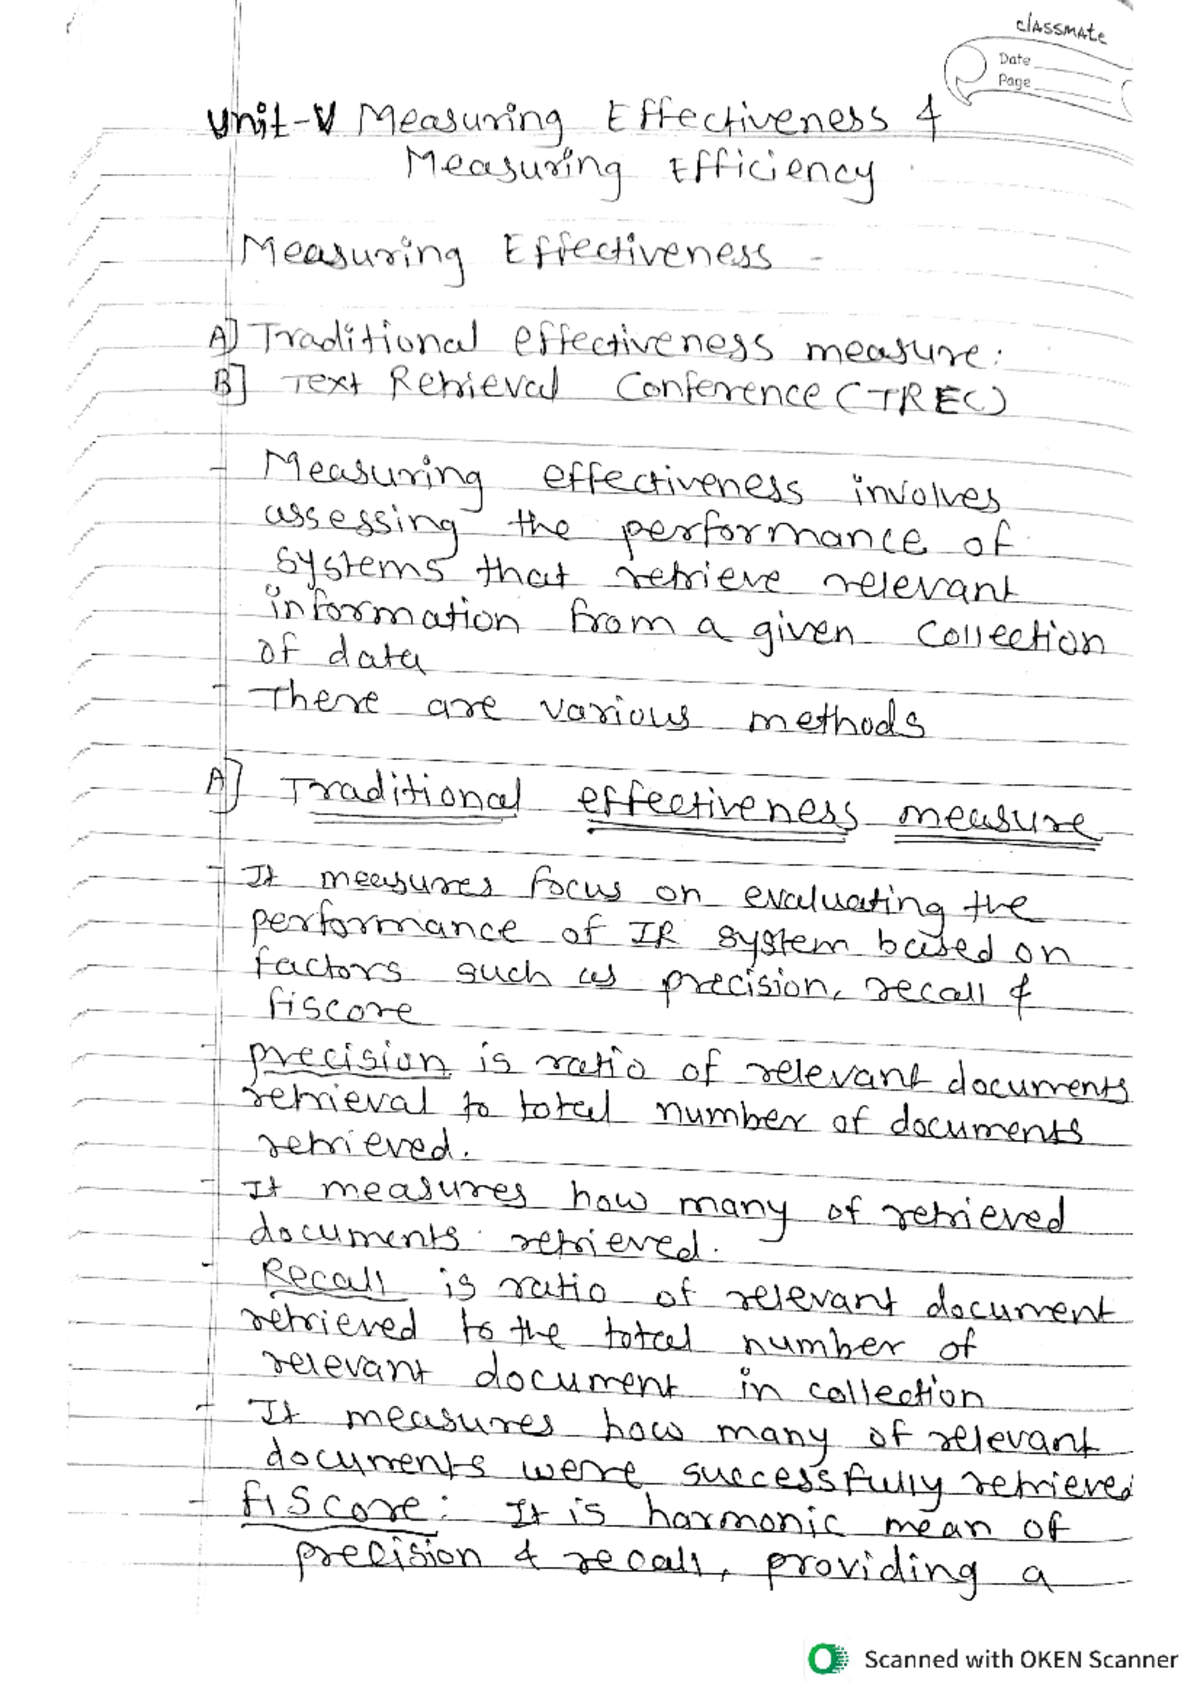 classmate
Date
Page
Unit-V Measuring Effectiveness &
Measuring Efficiency
Measuring Effectiveness -
A] Traditional effectiveness measure:
B] Text Retrieval Conference (TREC)
- Measuring effectiveness involves
assessing the performance of
systems that retrieve relevant
information from a given collection
of data
- There are various methods
A] Traditional effectiveness measure
- It measures focus on evaluating the
performance of IR system based on
factors such as precision, recall &
fiscore
- precision is ratio of relevant documents
retrieval to total number of documents
retrieved.
- It measures how many of retrieved
documents retrieved.
- Recall is ratio of relevant document
retrieved to the total number of
relevant document in collection
- It measures how many of relevant
documents were successfully retrieved
- fiscore: It is harmonic mean of
precision & recall, providing a
Scanned with OKEN Scanner